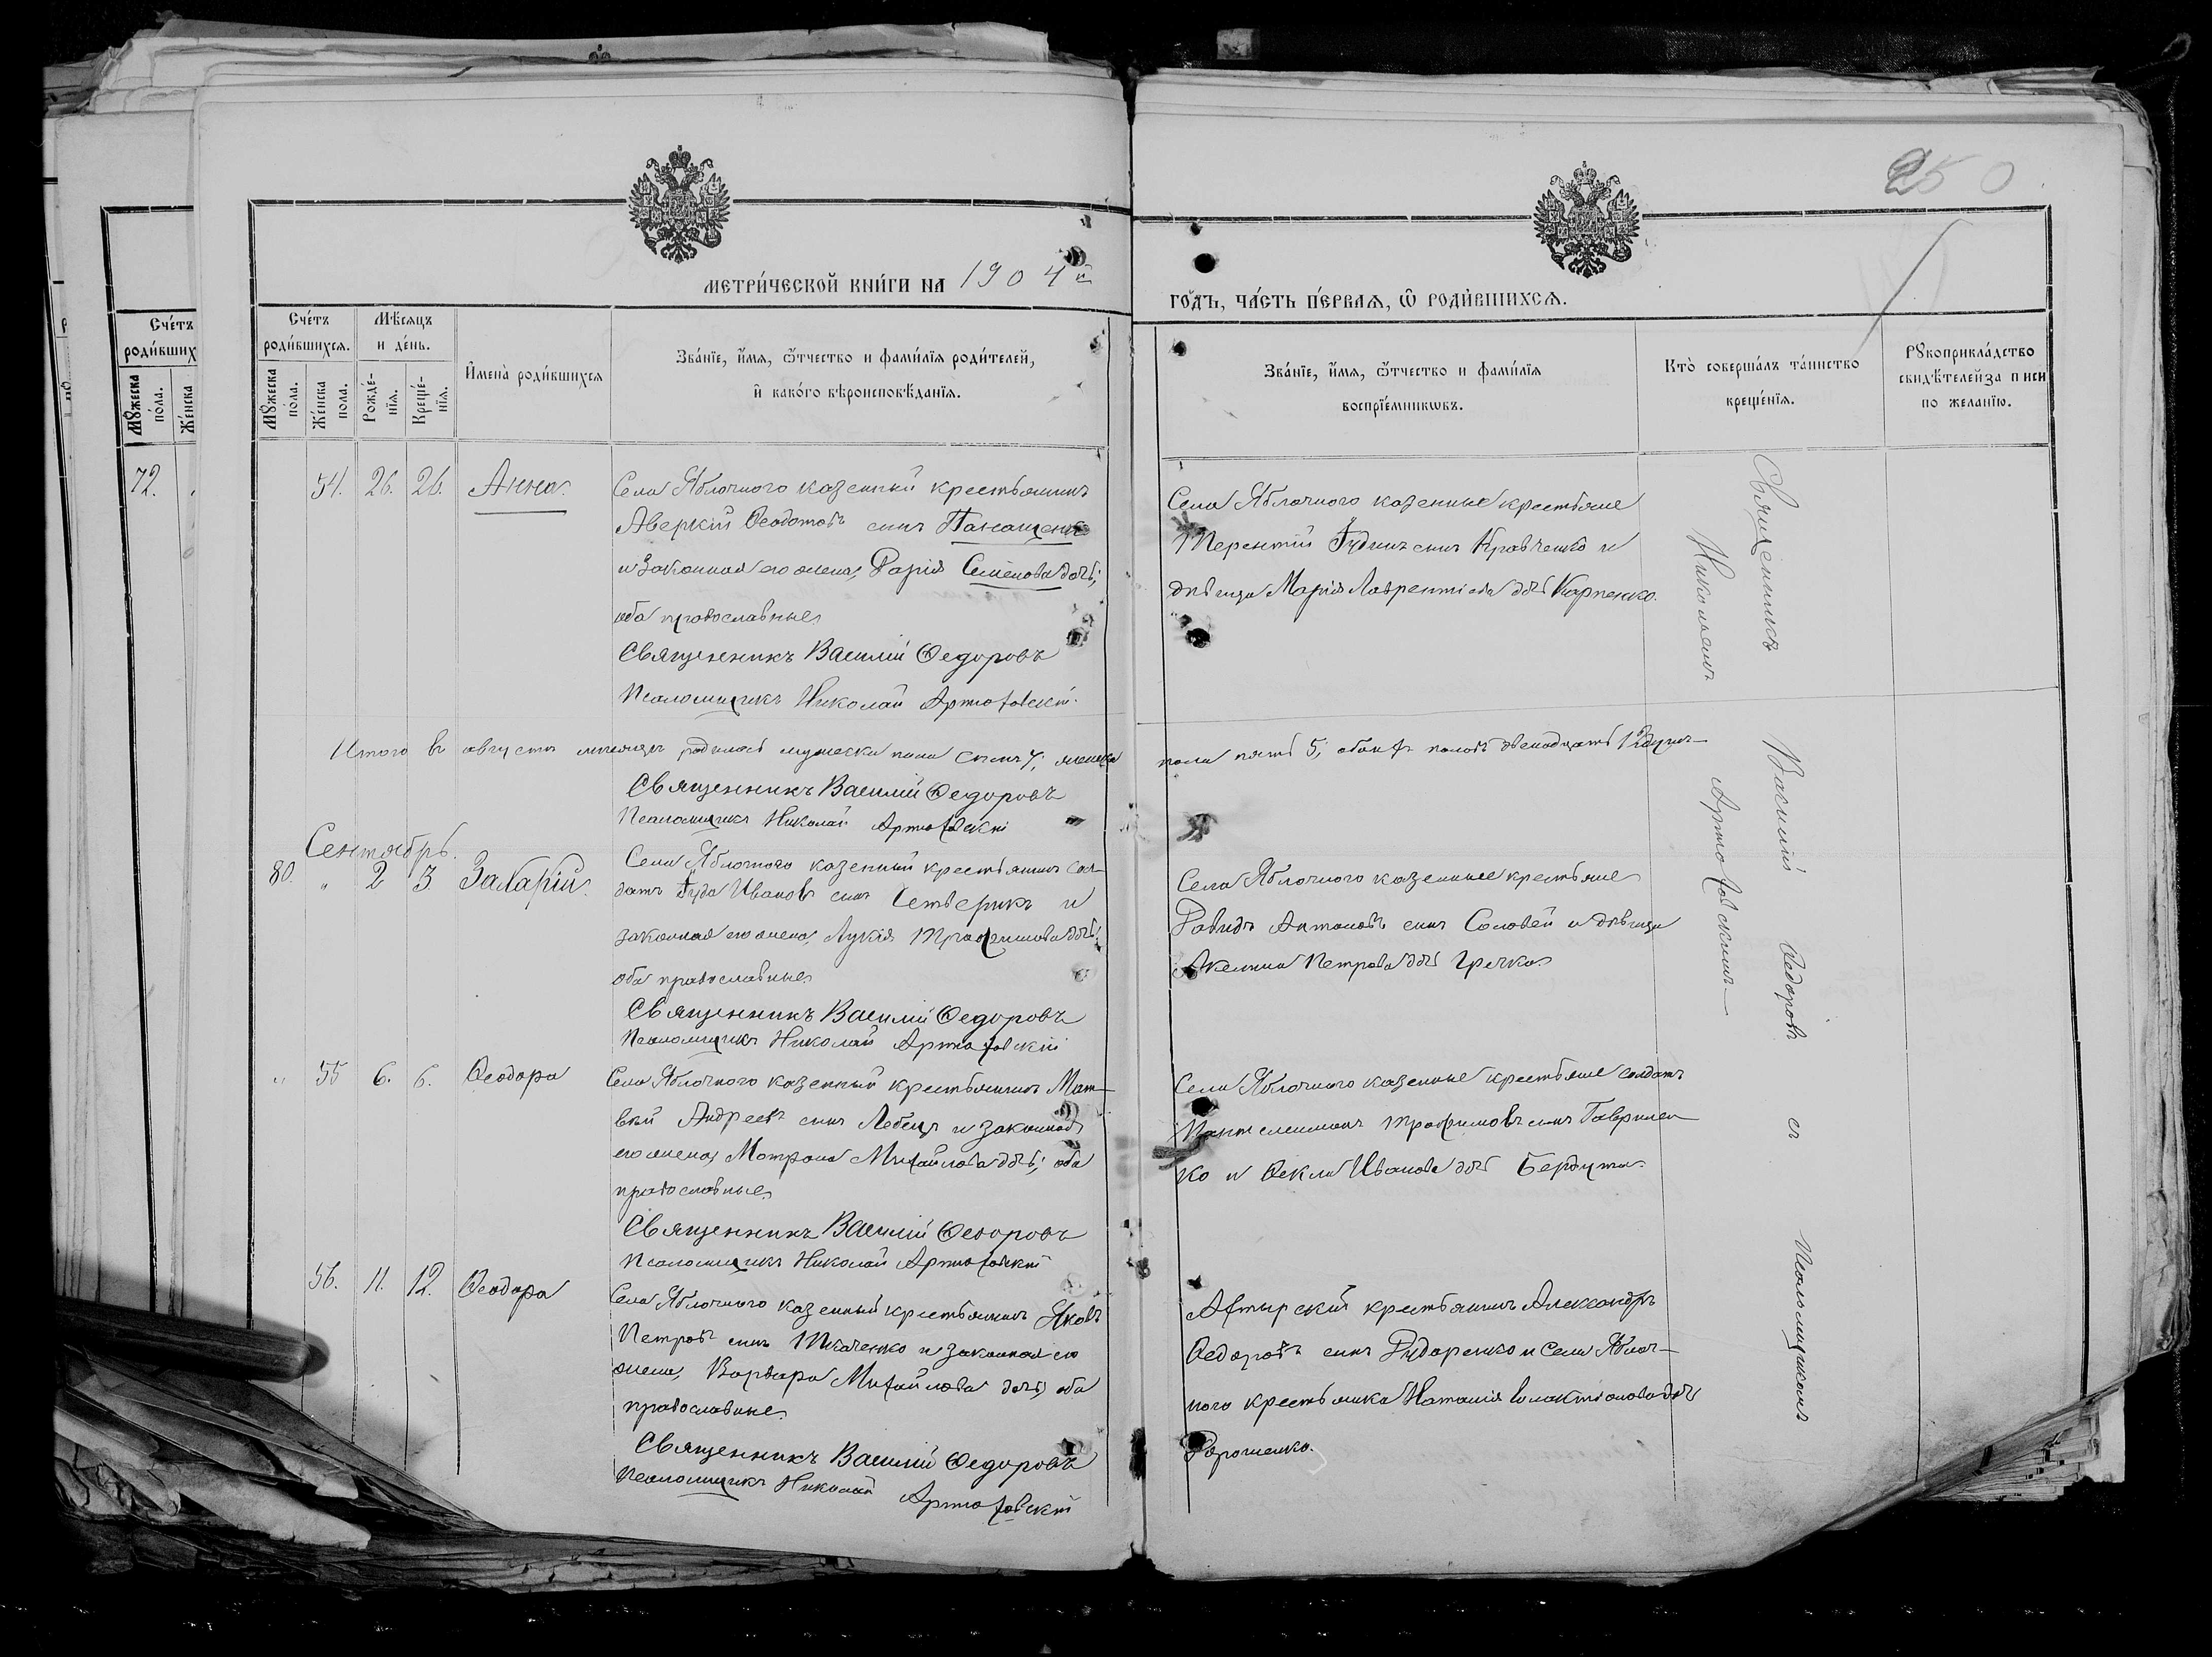 250
МЕТРИ́ЧЕСКОЙ КНИ́ГИ НА 1904й
ГО́ДЪ, ЧА́СТЬ ПЕ́РВАѦ, Ѡ РОДИ́ВШИХСѦ.
Сче́тъ
роди́вших
Мꙋжеска
по́ла.
Же́нска
72.
Сче́тъ
роди́вшихсѧ.
Мѣ́сѧцъ
и де́нь.
Мꙋжеска
по́ла.
Же́нска
пола.
Рожде́-
нїѧ.
Креще́-
нїѧ.
И҆мена̀ роди́вшихсѧ
Зва́нїе, и҆́мѧ, ѻ҆́тчество и фами́лїѧ роди́телей,
и҆ како́гѡ вѣроисповѣ́данїѧ.
Зва́нїе, и҆́мѧ, ѻ҆́тчество и фами́лїѧ
воспрїе́мникѡвъ.
Кто̀ соверша́лъ та́инство
креще́нїѧ.
Рꙋкоприкла́дство
свидѣ́телей за п иси
по жела́нїю.
54. 26. 26. Анна.
Села Яблочного казенный крестьянинъ
Аверкій Ѳеодотовъ сынъ Панащенко
и законная его жена, Дарія Семенова дочь;
оба православные
Священникъ Василій Ѳедоровъ
Псаломщикъ Николай Артюховскій.
Села Яблочного казенные крестьяне
Терентій Іудинъ сынъ Кравченко и
дѣвица Марія Лаврентіева дочь Карпенко.
Итого въ августѣ мѣсяцѣ родилось мужеска пола семь 7, женска
пола пять 5, обоихъ половъ двенадцать 12 душъ
Священникъ Василій Ѳедоровъ
Псаломщикъ Николай Артюховскій
Сентябрь.
80. " 2 3 Захарій.
Села Яблочного казенный крестьянинъ сол-
датъ Іуда Ивановъ сынъ Четверикъ и
законная его жена, Лукія Трофимова дочь;
оба православные
Священникъ Василій Ѳедоровъ
Псаломщикъ Николай Артюховскій
Села Яблочного казенные крестьяне
Давидъ Антоновъ сынъ Соловей и дѣвица
Акелина Петрова дочь Гречка.
" 55 6. 6. Ѳеодора
Села Яблочного казенный крестьянинъ Мат-
вѣй Андреевъ сынъ Лебедь и законная
его жена, Матрона Михайлова дочь; оба
православные
Священникъ Василій Ѳедоровъ
Псаломщикъ Николай Артюховскій
Села Яблочного казенные крестьяне солдатъ
Пантелеимонъ Трофимовъ сынъ Гаврилен
ко и Ѳекла Иванова дочь Бердута.
56. 11. 12. Ѳеодора
Села Яблочного казенный крестьянинъ Яковъ
Петровъ сынъ Ткаченко и законная его
жена, Варвара Михайлова дочь, оба
православные.
Священникъ Василій Ѳедоровъ
Псаломщикъ Николай Артюховскій
Ахтырскій крестьянинъ Александръ
Ѳедоровъ сынъ Рударенко и села Яблоч-
ного крестьянка Наталія Галактіонова дочь
Дорошенко.
Священникъ Василій Ѳедоровъ съ Псаломщикомъ
Николаемъ Артюховскимъ